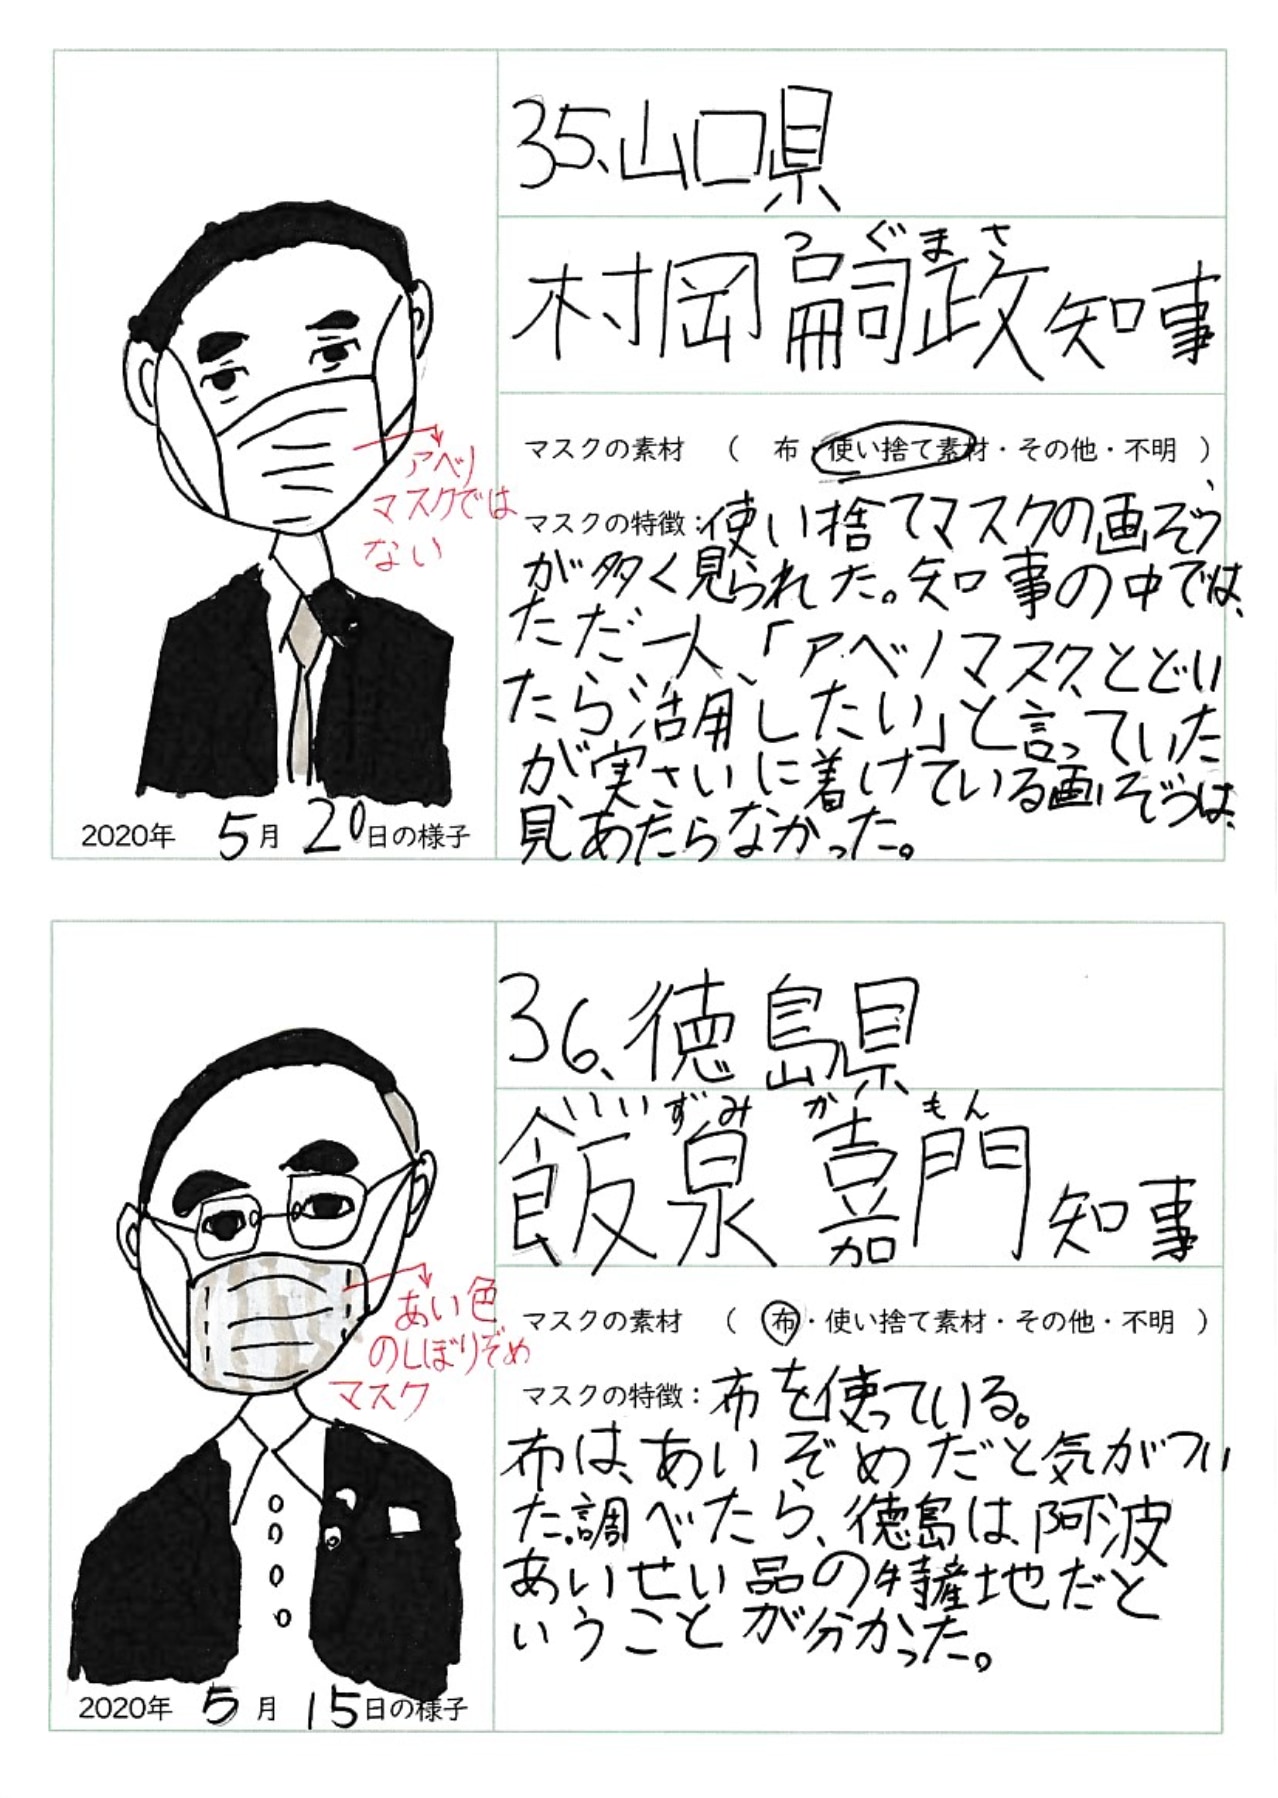 35、山口県
つぐまさ
村岡 嗣政 知事
マスクの素材 （ 布・使い捨て素材・その他・不明 ）
マスクの特徴：使い捨てマスクの画ぞう
が多く見られた。知事の中では、
ただ一人、「アベノマスク、とどい
たら活用したい」と言っていた
が、実さいに着けている画ぞうは、
見あたらなかった。
アベノ
マスクでは
ない
2020年 5月 20日の様子
36、徳島県
いいずみ か もん
飯泉 嘉門 知事
マスクの素材 （ 布・使い捨て素材・その他・不明 ）
マスクの特徴：布を使っている。
布は、あいぞめだと気がつい
た。調べたら、徳島は、阿波
あいせい品の特産地だと
いうことが分かった。
あい色
のしぼりぞめ
マスク
2020年 5月 15日の様子